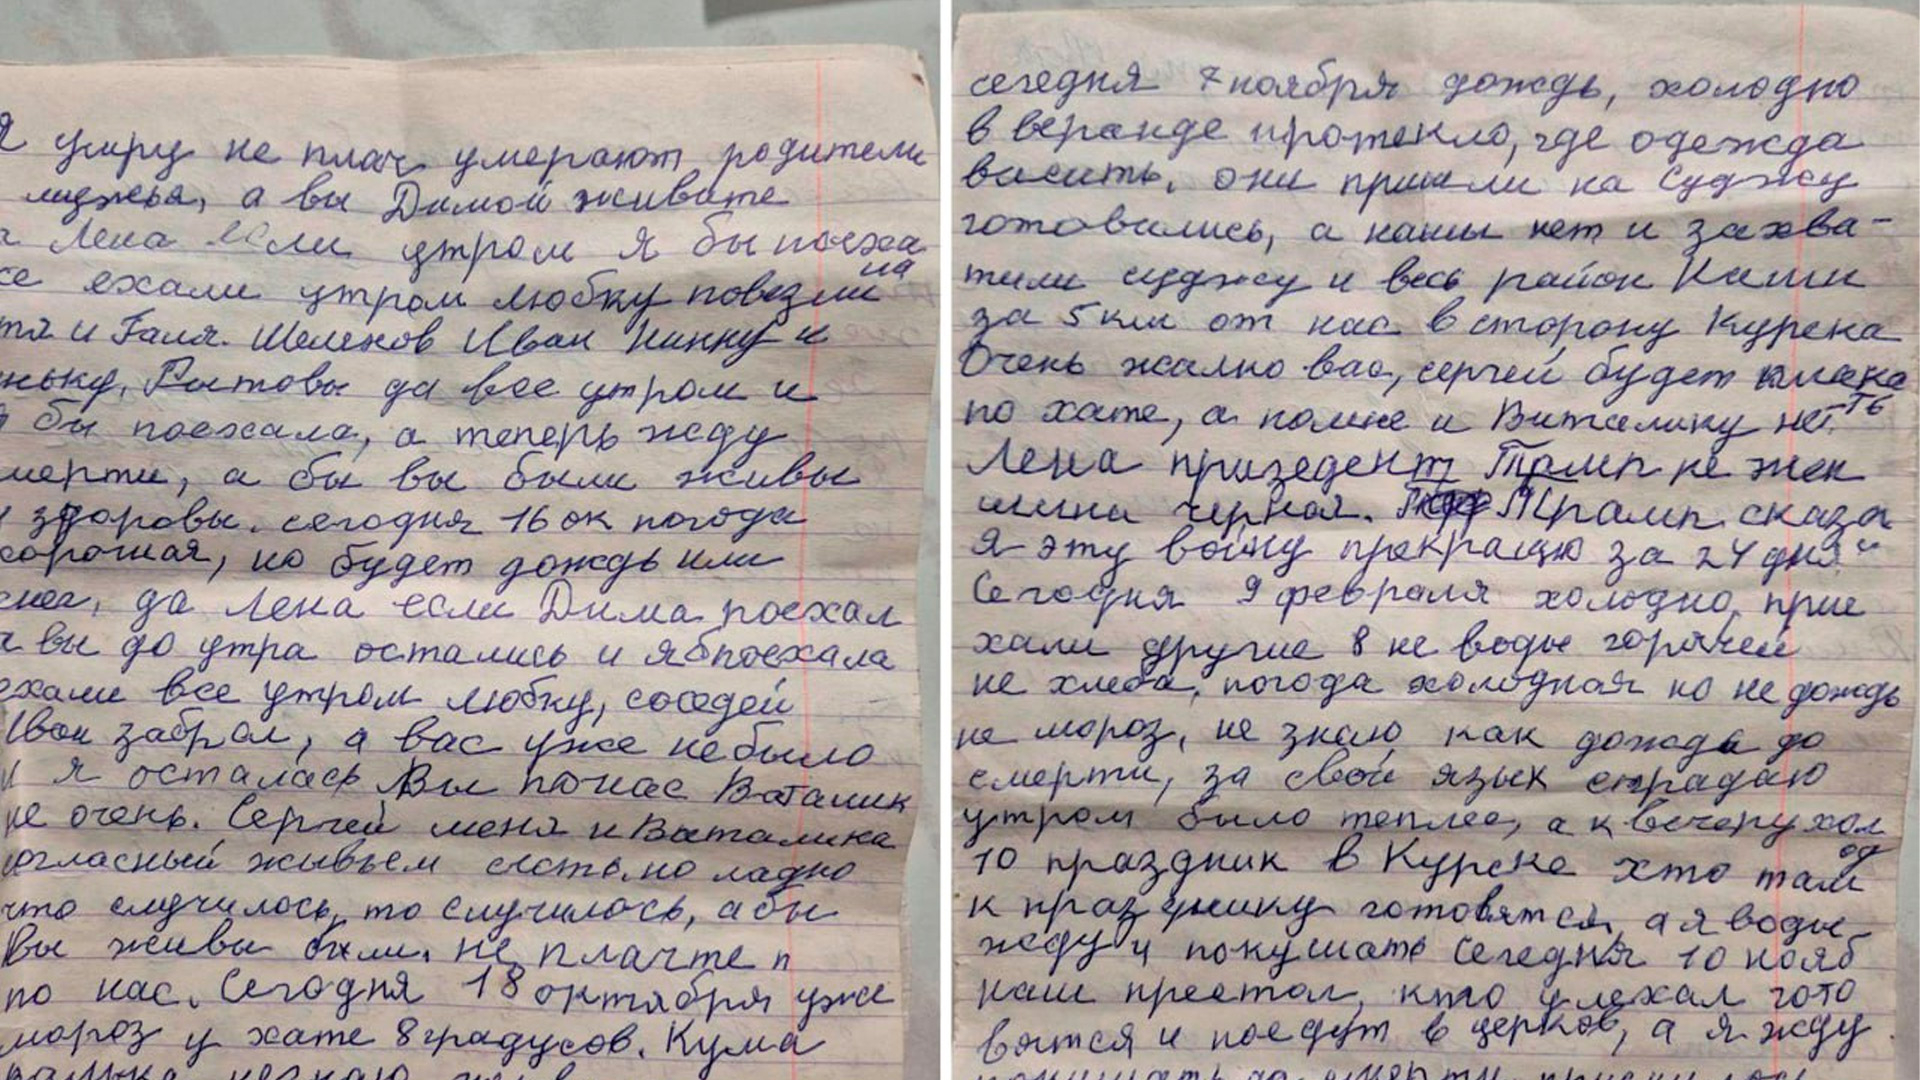 я умру не плач умерают родители
а вы Димой живите
Лена если утром я бы поеха
се ехали утром любку повезли на
тя и Галя. Шелехов Иван Нинку и
ньку, да все утром и
бы поехала, а теперь жду
мерти, а бы вы были живы
здоровы. сегодня 16 ок погода
хорошая, но будет дождь или
снег, да Лена если Дима поехал
а вы до утра остались и я б поехала
ехали все утром любку, соседей
Иван забрал, а вас уже не было
и я осталась Вы по нас Ваталик
не очень. Сергей меня и Виталика
огласный живьем но ладно
что случилось, то случилось, а бы
Вы живы были. не плачте п
по нас. Сегодня 18 октября уже
мороз у хате 8 градусов. Кума
сегедня 7 ноября дождь, холодно
в веранде протекло, где одежда
васить. они пришли на Суджу
готовились, а нашы нет и захва-
тили суджу и весь район Наши
за 5 км от нас в сторону Курска
Очень жално вас, сергей будет плака
по хате, а помне и Виталику нет. ть
Лена призедент Трамп не жен
шина черная. Трамп сказа
я эту войну прекращю за 24 дня"
Сегодня 9 февраля холодно, прие
хали другие 8 не воды горячей
не хлеба, погода холодная но не дождь
не мороз, не знаю как дожда до
смерти, за свой язык страдаю
утром было теплее, а к вечеру хол
од
10 праздник в Курске хто там
к празднику готовятся, а я воды
жду и покушать Сегедня 10 нояб
наш престол, кто уехал гото
вятся и поедут в церков, а я жду